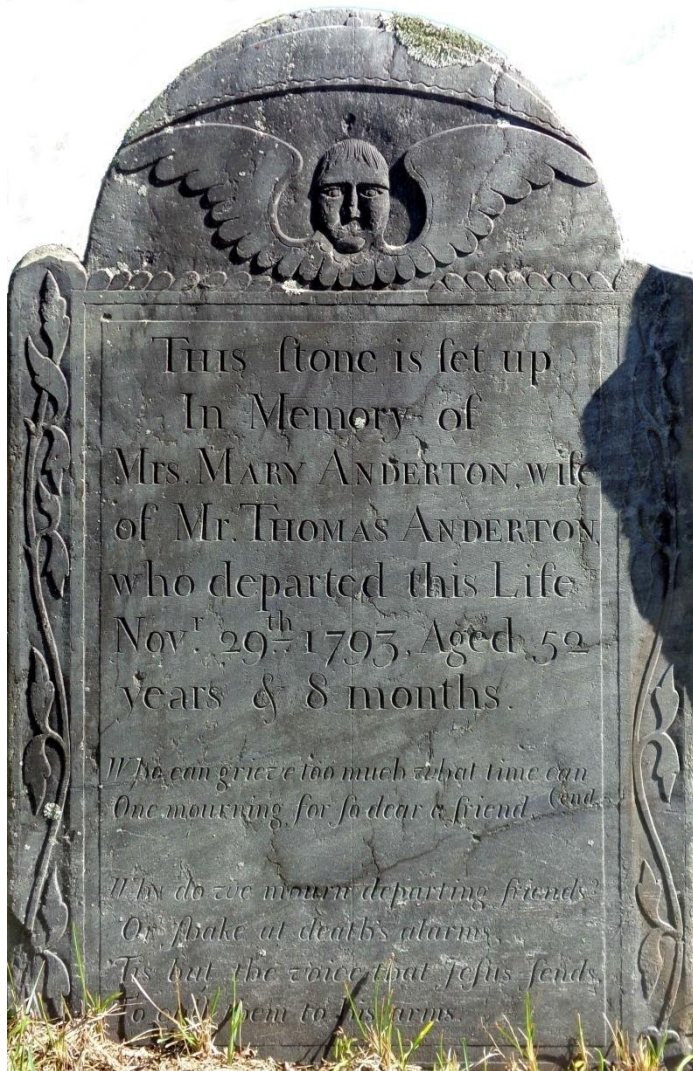 THIS ſtone is ſet up
In Memory of
Mrs. MARY ANDERTON, wife
of Mr. THOMAS ANDERTON,
who departed this Life
Novʳ. 29ᵗʰ 1793, Aged 52
years & 8 months.
Who can grieve too much what time can
One mourning for ſo dear a friend, (end,
Why do we mourn departing friends?
Or ſhake at death's alarms,
Tis but the voice that Jeſus ſends,
To call them to his arms.